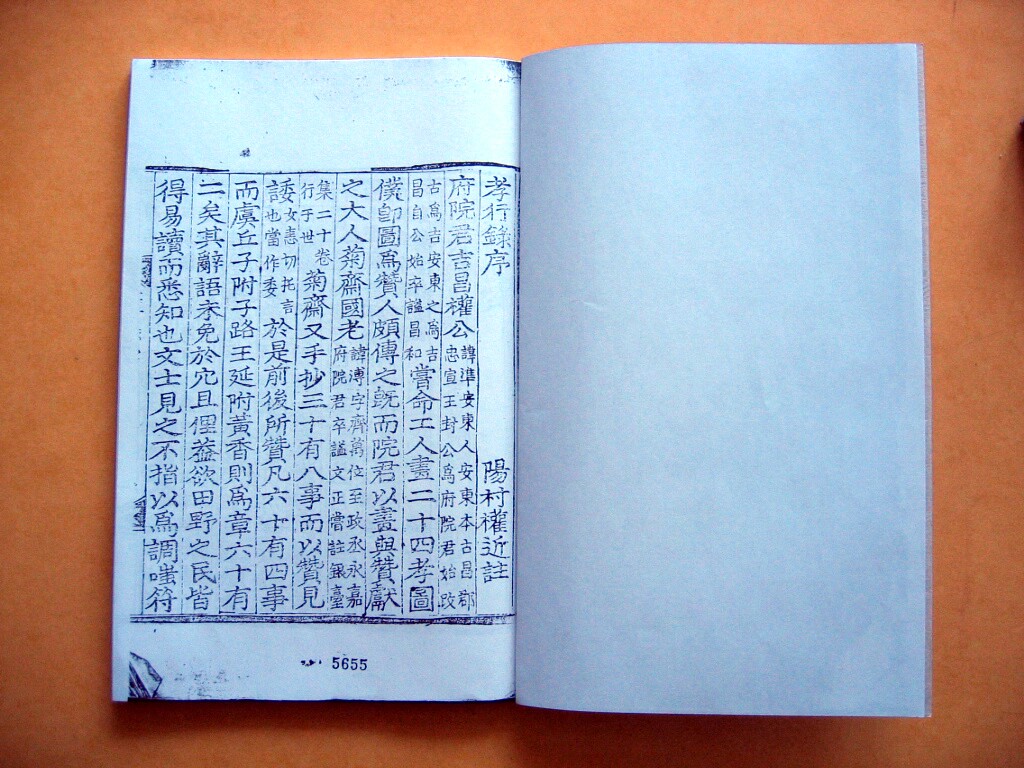 孝行錄序
陽村權近註
府院君吉昌權公諱準安東人安東本古昌郡忠宣王封公爲府院君始改
古爲吉安東之爲吉昌自公始卒謚昌和嘗命工人畫二十四孝圖
僕卽圖爲贊人頗傳之旣而院君以畫與贊獻
之大人菊齋國老諱溥字齊萬位至政丞永嘉府院君卒謚文正嘗註銀臺
集二十卷行于世菊齋又手抄三十有八事而以贊見
諉女恚切托言也當作委於是前後所贊凡六十有四事
而虞丘子附子路王延附黃香則爲章六十有
二矣其辭語未免於冗且俚葢欲田野之民皆
得易讀而悉知也文士見之不指以爲調嗤符
5655